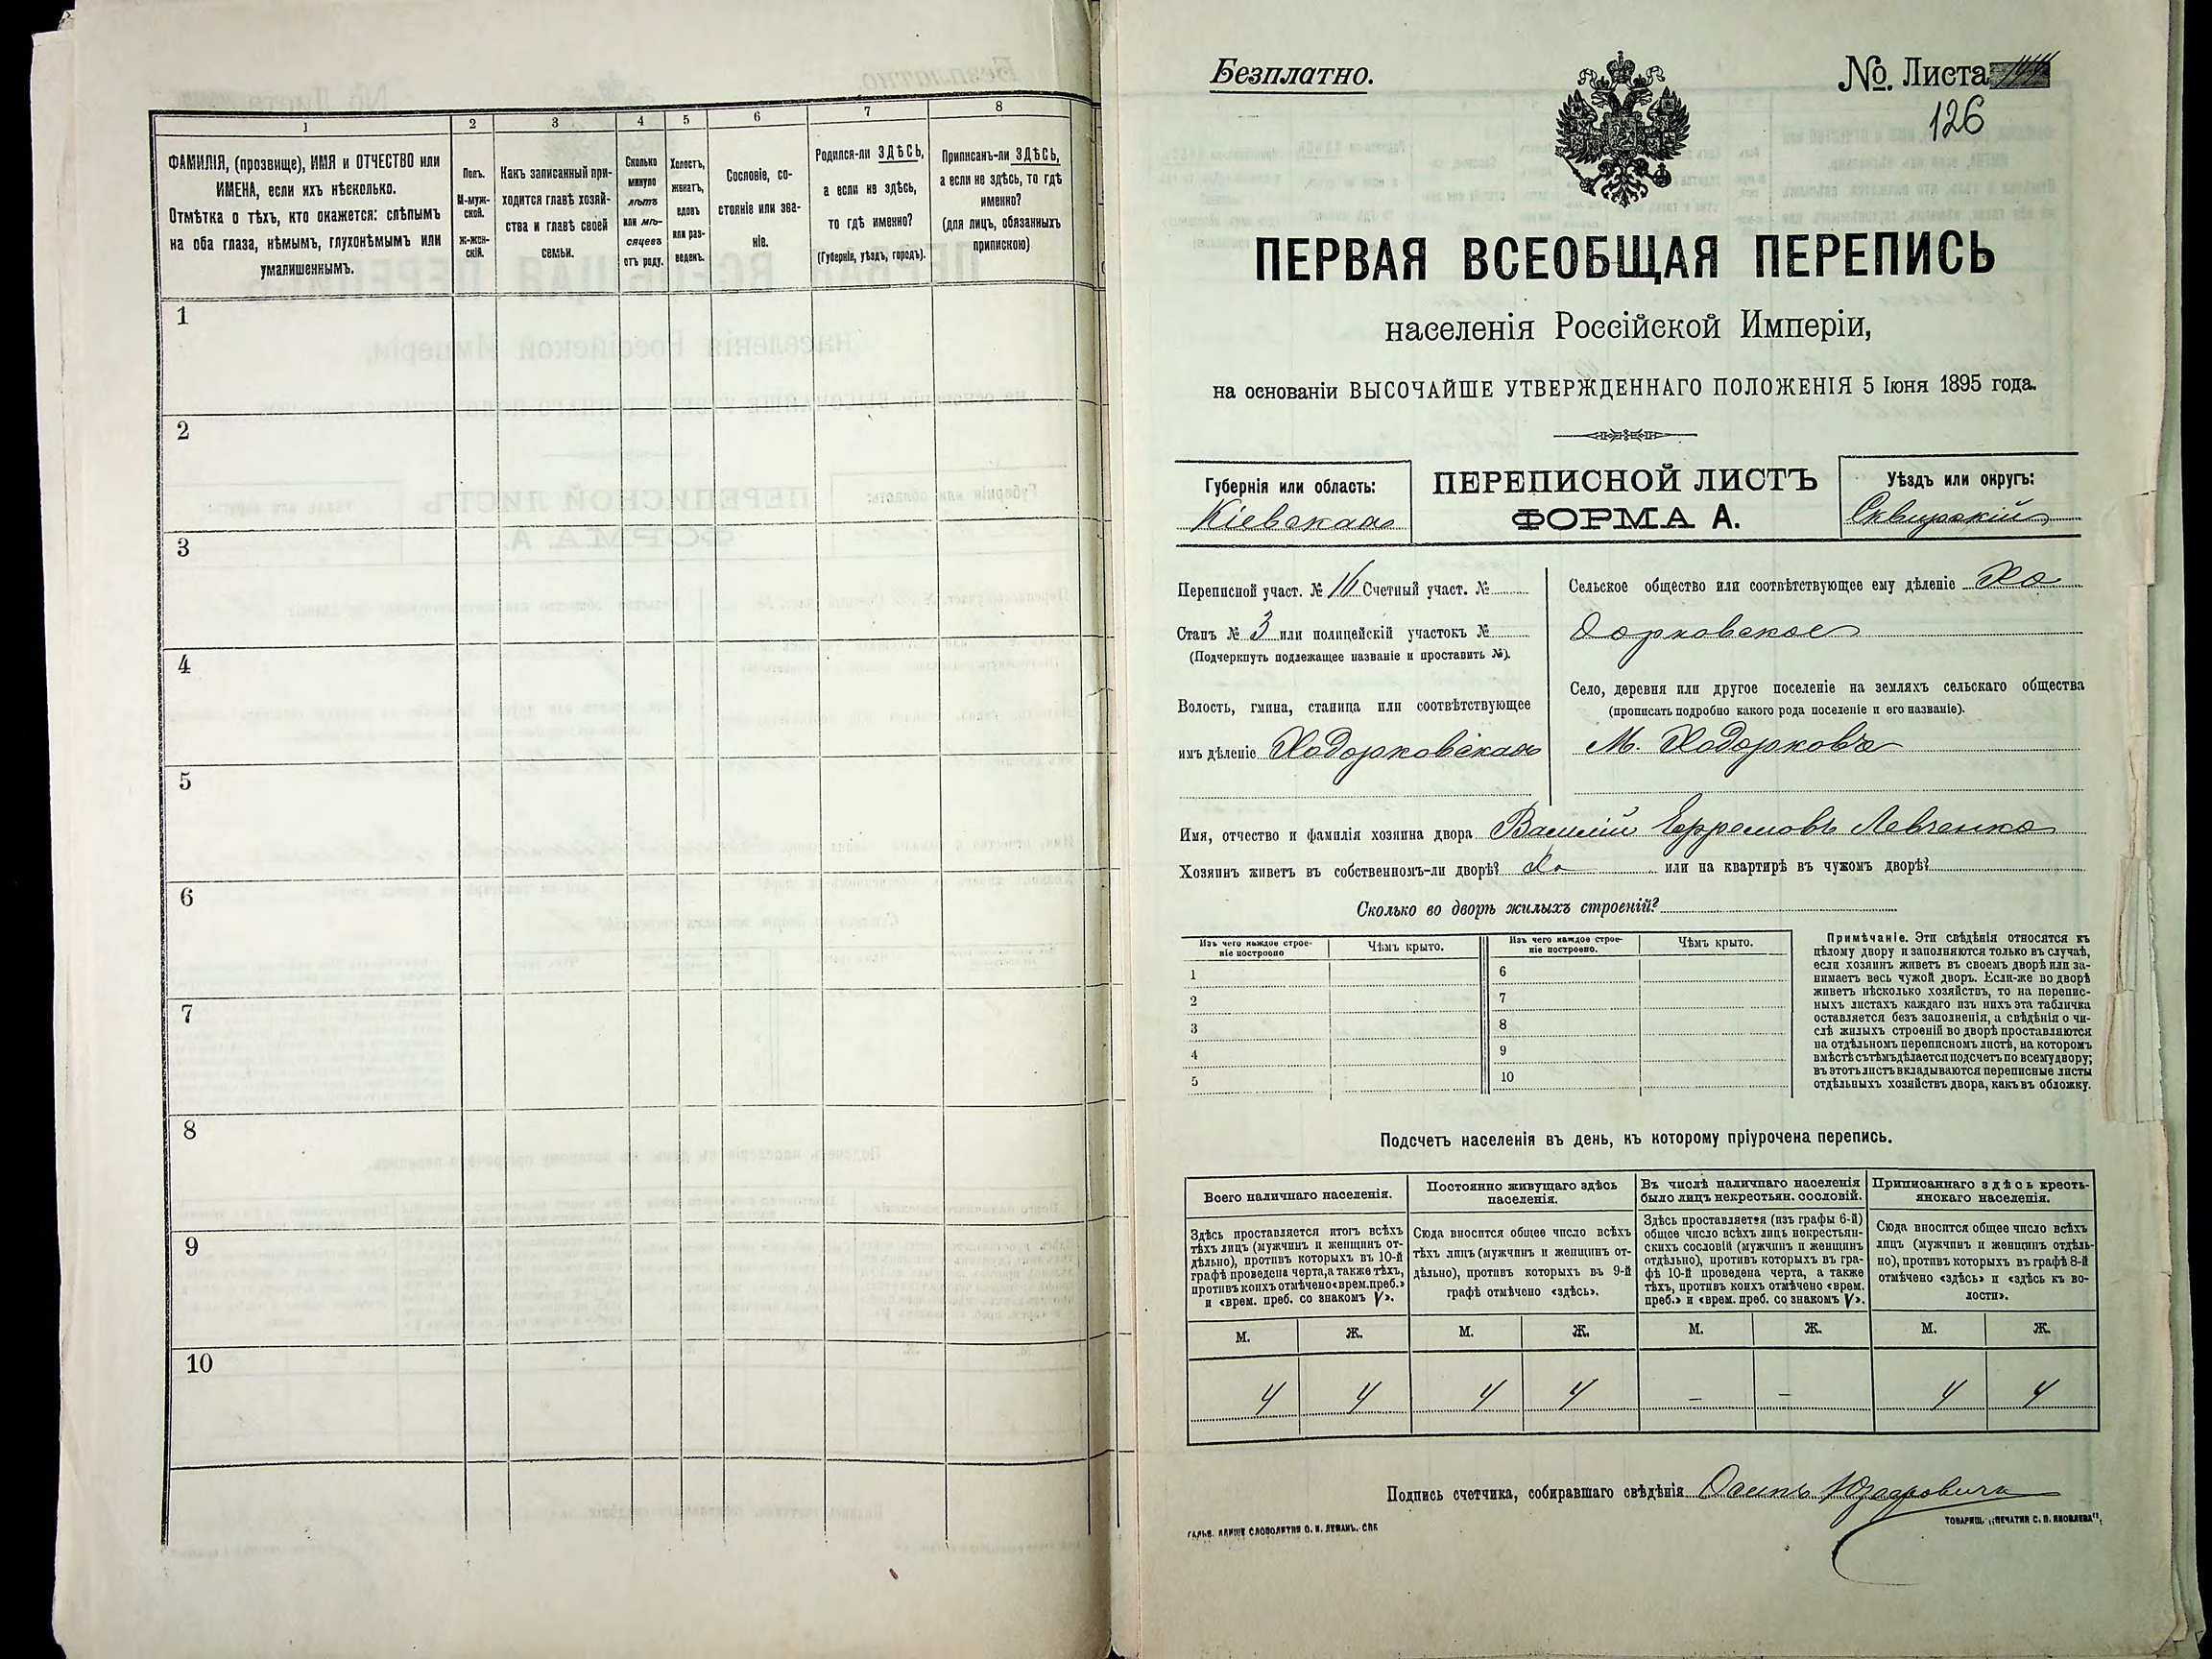 1
2
3
4
5
6
7
8
ФАМИЛІЯ, (прозвище), ИМЯ и ОТЧЕСТВО или
ИМЕНА, если ихъ нѣсколько.
Отмѣтка о тѣхъ, кто окажется: слѣпымъ
на оба глаза, нѣмымъ, глухонѣмымъ или
умалишеннымъ.
Полъ.
М-муж-
ской.
Ж-жен-
скій.
Какъ записанный при-
ходится главѣ хозяй-
ства и главѣ своей
семьи.
Сколько
минуло
лѣтъ
или мѣ-
сяцевъ
отъ роду.
Холостъ,
женатъ,
вдовъ
или раз-
веденъ.
Сословіе, со-
стояніе или зва-
ніе.
Родился-ли ЗДѢСЬ,
а если не здѣсь,
то гдѣ именно?
(Губернія, уѣздъ, городъ).
Приписанъ-ли ЗДѢСЬ,
а если не здѣсь, то гдѣ
именно?
(для лицъ, обязанныхъ
припискою)
1
2
3
4
5
6
7
8
9
10
Безплатно.
№. Листа
126
ПЕРВАЯ ВСЕОБЩАЯ ПЕРЕПИСЬ
населенія Россійской Имперіи,
на основаніи ВЫСОЧАЙШЕ УТВЕРЖДЕННАГО ПОЛОЖЕНІЯ 5 Іюня 1895 года.
Губернія или область:
Кіевская
ПЕРЕПИСНОЙ ЛИСТЪ
ФОРМА А.
Уѣздъ или округъ:
Сквирскій
Переписной участ. № 16 Счетный участ. №
Станъ № 3 или полицейскій участокъ №
(Подчеркнуть подлежащее названіе и проставить №).
Волость, гмина, станица или соотвѣтствующее
имъ дѣленіе Ходорковская
Сельское общество или соотвѣтствующее ему дѣленіе Хо
дорковское
Село, деревня или другое поселеніе на земляхъ сельскаго общества
(прописать подробно какого рода поселеніе и его названіе).
М. Ходорковъ
Имя, отчество и фамилія хозяина двора Василій Ефремовъ Левченко
Хозяинъ живетъ въ собственномъ-ли дворѣ? Да или на квартирѣ въ чужомъ дворѣ?
Сколько во дворѣ жилыхъ строеній?
Изъ чего каждое строе-
ніе построено
Чѣмъ крыто.
Изъ чего каждое строе-
ніе построено.
Чѣмъ крыто.
1
2
3
4
5
6
7
8
9
10
Примѣчаніе. Эти свѣдѣнія относятся къ
цѣлому двору и заполняются только въ случаѣ,
если хозяинъ живетъ въ своемъ дворѣ или за-
нимаетъ весь чужой дворъ. Если-же во дворѣ
живетъ нѣсколько хозяйствъ, то на перепис-
ныхъ листахъ каждаго изъ нихъ эта табличка
оставляется безъ заполненія, а свѣдѣнія о чи-
слѣ жилыхъ строеній во дворѣ проставляются
на отдѣльномъ переписномъ листѣ, на которомъ
вмѣстѣ съ тѣмъ дѣлается подсчетъ по всему двору;
въ этотъ листъ вкладываются переписные листы
отдѣльныхъ хозяйствъ двора, какъ въ обложку.
Подсчетъ населенія въ день, къ которому пріурочена перепись.
Всего наличнаго населенія.
Здѣсь проставляется итогъ всѣхъ
тѣхъ лицъ (мужчинъ и женщинъ от-
дѣльно), противъ которыхъ въ 10-й
графѣ проведена черта, а также тѣхъ,
противъ коихъ отмѣчено «врем. преб.»
и «врем. преб. со знакомъ V».
Постоянно живущаго здѣсь
населенія.
Сюда вносится общее число всѣхъ
тѣхъ лицъ (мужчинъ и женщинъ от-
дѣльно), противъ которыхъ въ 9-й
графѣ отмѣчено «здѣсь».
Въ числѣ наличнаго населенія
было лицъ некрестьян. сословій.
Здѣсь проставляется (изъ графы 6-й)
общее число всѣхъ лицъ некрестьян-
скихъ сословій (мужчинъ и женщинъ
отдѣльно), противъ которыхъ въ гра-
фѣ 10-й проведена черта, а также
тѣхъ, противъ коихъ отмѣчено «врем.
преб.» и «врем. преб. со знакомъ V».
Приписаннаго здѣсь кресть-
янскаго населенія.
Сюда вносится общее число всѣхъ
лицъ (мужчинъ и женщинъ отдѣль-
но), противъ которыхъ въ графѣ 8-й
отмѣчено «здѣсь» и «здѣсь къ во-
лости».
М. Ж. М. Ж. М. Ж. М. Ж.
4 4 4 4 – – 4 4
Подпись счетчика, собиравшаго свѣдѣнія Осипъ
ТОВАРИЩ. „ПЕЧАТНЯ С. П. ЯКОВЛЕВА“.